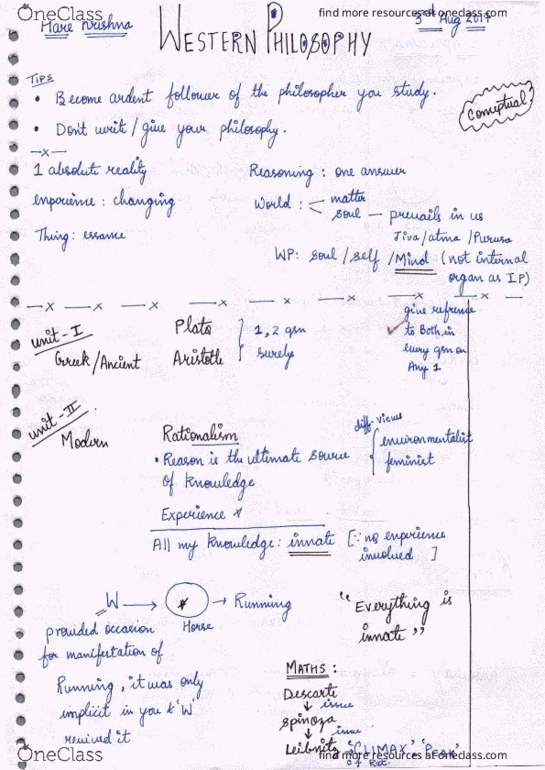 OneClass
find more resources at oneclass.com
Hare Krishna
3rd Aug 2017
WESTERN PHILOSOPHY
TIPS
• Become ardent follower of the philosopher you study.
Conceptual?
• Don't writ / give your philosophy.
—x—
1 absolute reality
Reasoning : one answer
experience : changing
World : < matter
soul — prevails in us
Thing : essance
Jiva/atma /Purusa
WP: soul / self / Mind (not internal
organ as IP)
—x —x —x —x —x —x —x —x
give refrence
to Both in
every qsn on
Any 1
unit-I
Greek/Ancient
Plato
Aristotle
1, 2 qsn
surely
unit-II
Modern
Rationalism
diff. views
environmentalist
feminist
• Reason is the ultimate source
of knowledge
Experience x
All my knowledge : innate [∵ no experience
involved ]
W → → Running
Horse
"Everything is
innate"
provided occasion
for manifetation of
Running, it was only
implicit in you & 'W'
revived it
MATHS :
Descarte
↓ issue
Spinoza
↓ issue
Leibnitz → 'CLIMAX' 'PEAK'
of Rat.
OneClass
find more resources at oneclass.com